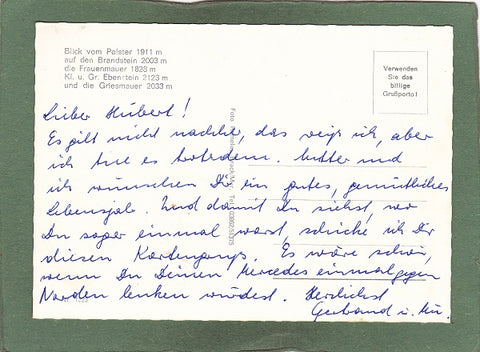 Blick vom Polster 1911 m
auf den Brandstein 2003 m
die Frauenmauer 1828 m
Kl. u. Gr. Ebenstein 2123 m
und die Griesmauer 2033 m
Verwenden
Sie das
billige
Grußporto!
Lieber Hubert!
Es gilt nicht nachher, das weiß ich, aber
ich tue es trotzdem. Mutter und
ich wünschen Dir ein gutes, gemütliches
Lebensjahr. Und damit Du siehst, wo
Du sogar einmal warst, schicke ich Dir
diesen Kartengruß. Es wäre schön,
wenn Du Deinen Mercedes einmal gegen
Norden lenken würdest. Herzlichst
Gerhard u.
Foto